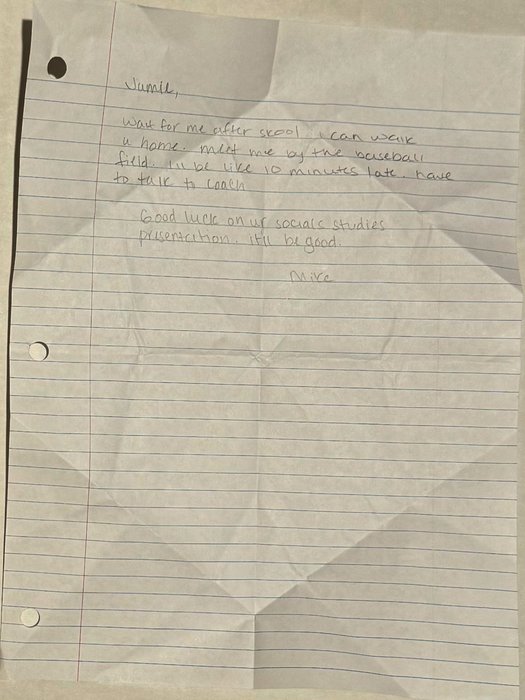 Jamie,
Wait for me after skool i can walk
u home. meet me by the baseball
field. I'll be like 10 minutes late. have
to talk to coach
Good luck on ur socials studies
presentation. it'll be good.
Mike